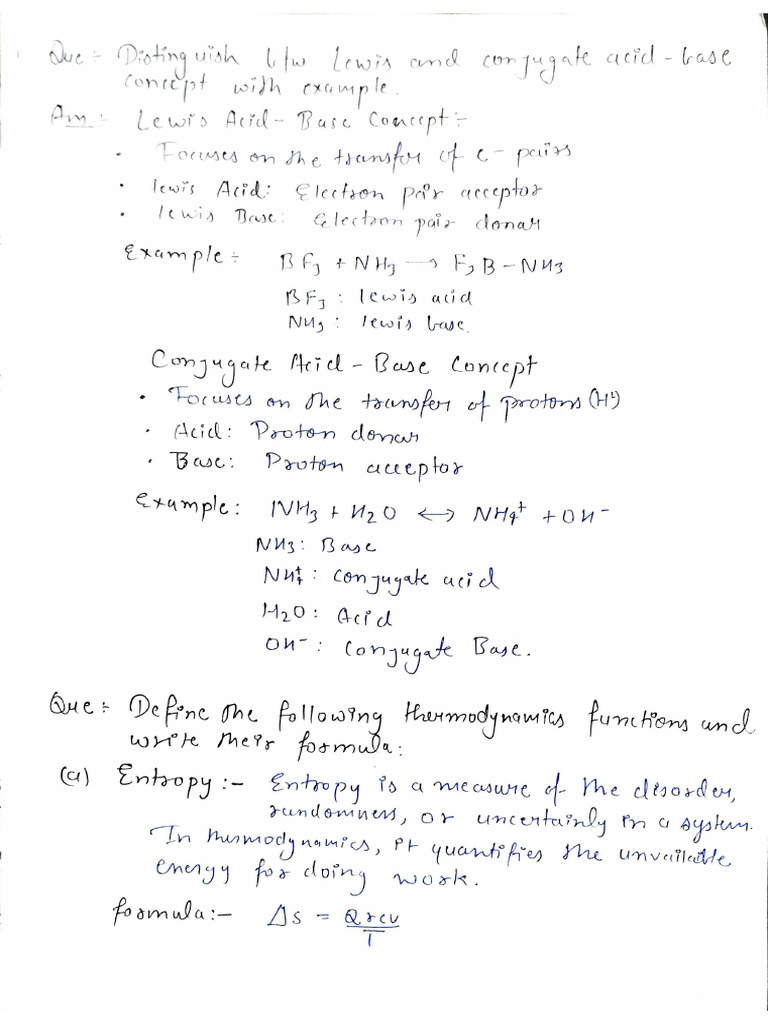 Que :- Distinguish b/w Lewis and conjugate acid-base
concept with example.
Ans:- Lewis Acid-Base Concept:-
• Focuses on the transfer of e- pairs
• lewis Acid: Electron pair acceptor
• lewis Base: Electron pair donar
Example :- BF3 + NH3 → F3B-NH3
BF3 : lewis acid
NH3 : lewis base.
Conjugate Acid-Base Concept
• Focuses on the transfer of protons (H+)
• Acid: Proton donar
• Base: Proton acceptor
Example: NH3 + H2O ↔ NH4+ + OH-
NH3: Base
NH4+ : conjugate acid
H2O : Acid
OH- : Conjugate Base.
Que :- Define the following thermodynamics functions and
write their formula:
(a) Entropy :- Entropy is a measure of the disorder,
randomness, or uncertainly in a system.
In thermodynamics, it quantifies the unvailable
energy for doing work.
formula:- ΔS = Qrev/T